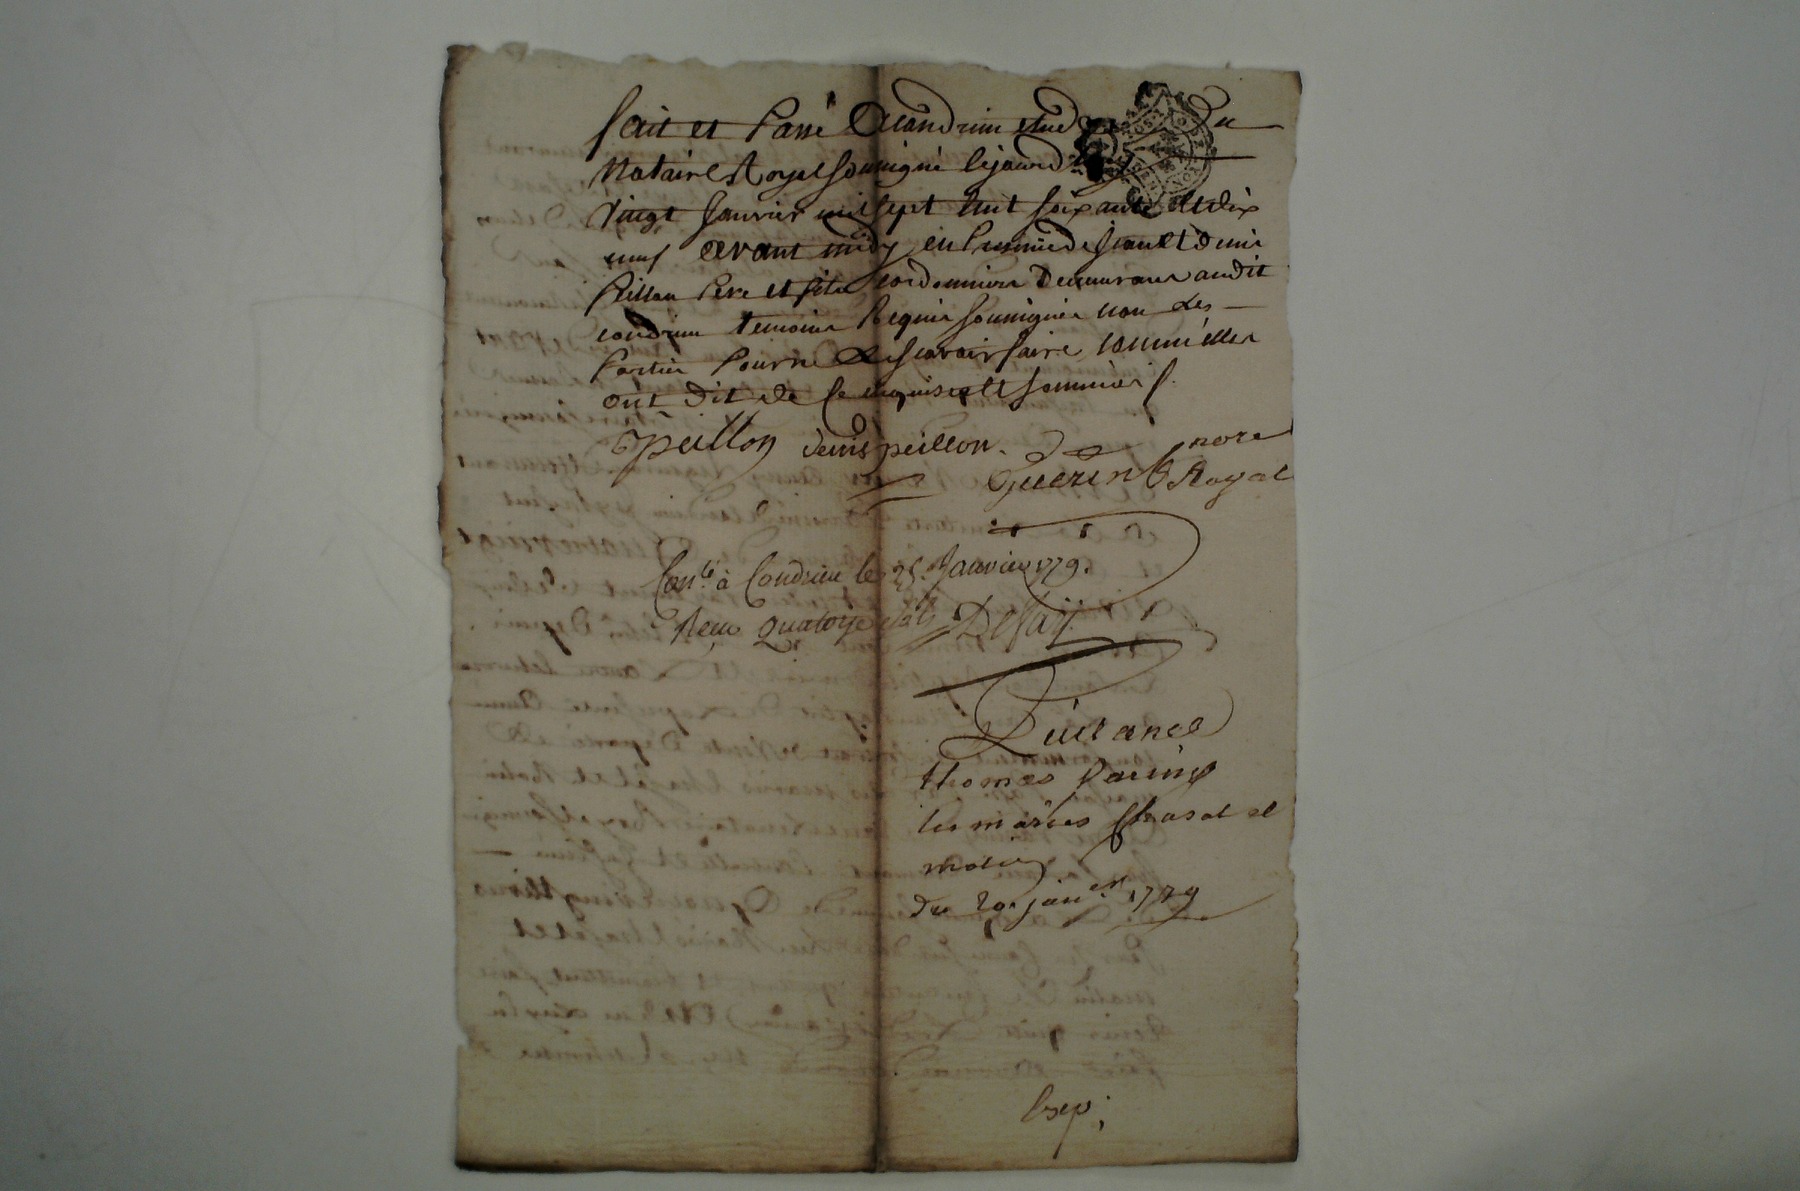 fait et Passé a Condrieu etude du
Notaire Royal soussigné le jour d'huy
vingt Janvier mil sept cent soixante et dix
neuf avant midy en Presence de Jean et denis
Peillon Pere et fils cordonniers demeurans audit
condrieu temoins Requis soussignés non les
Parties Pour ne le scavoir faire comme elles
ont dit de ce enquises et sommées
Jpeillon denis peillon.
Guerin nore
Royal
Conlé à Condrieu le 25 Janvier 1779.
Reçu quatorze sols Defay
Quittance
thomas
les mariés Chasal et
du 20 janer 1779
Exp;